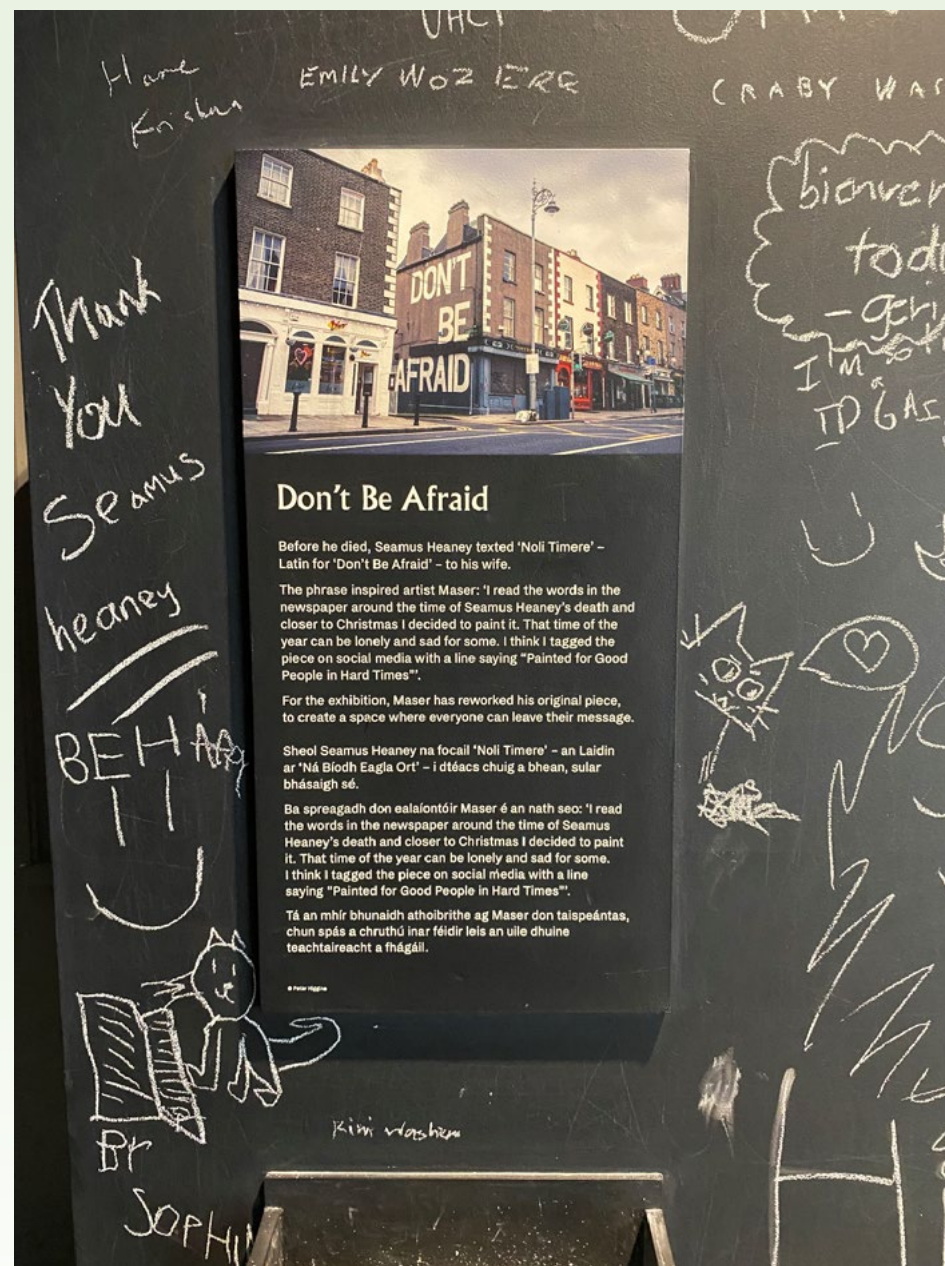 Hare
Krishna
EMILY WOZ ERE
CRABY
Thank
You
Seamus
heaney
BE HAPPY
DON'T
BE
AFRAID
Don't Be Afraid
Before he died, Seamus Heaney texted ‘Noli Timere’ –
Latin for ‘Don't Be Afraid’ – to his wife.
The phrase inspired artist Maser: ‘I read the words in the
newspaper around the time of Seamus Heaney's death and
closer to Christmas I decided to paint it. That time of the
year can be lonely and sad for some. I think I tagged the
piece on social media with a line saying “Painted for Good
People in Hard Times”’.
For the exhibition, Maser has reworked his original piece,
to create a space where everyone can leave their message.
Sheol Seamus Heaney na focail ‘Noli Timere’ – an Laidin
ar ‘Ná Bíodh Eagla Ort’ – i dtéacs chuig a bhean, sular
bhásaigh sé.
Ba spreagadh don ealaíontóir Maser é an nath seo: ‘I read
the words in the newspaper around the time of Seamus
Heaney's death and closer to Christmas I decided to paint
it. That time of the year can be lonely and sad for some.
I think I tagged the piece on social media with a line
saying “Painted for Good People in Hard Times”’.
Tá an mhír bhunaidh athoibrithe ag Maser don taispeántas,
chun spás a chruthú inar féidir leis an uile dhuine
teachtaireacht a fhágáil.
© Peter Higgins
I'M
Br